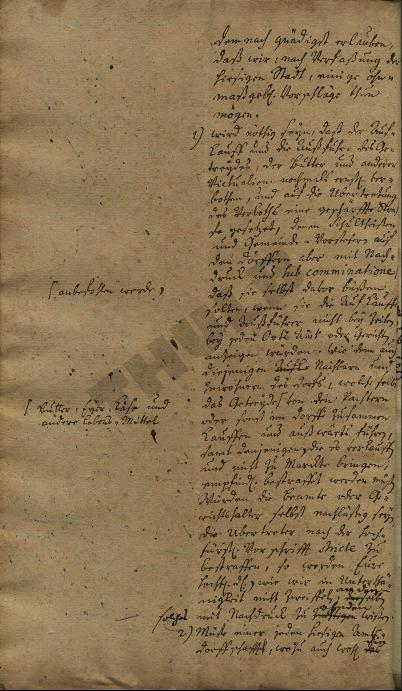 demnach gnädigst erlauben,
daß wir, nach Verfaßung der
hiesigen Stadt, einige ohn-
maßgebl. Vorschläge thun
mögen.
1) wird nöthig seyn, daß der Auf-
kauff und die Ausfuhr des Ge-
treydes, der Butter und anderer
Victualien nochmals ernstl. ver-
bothen, und auf die Übertretung
des Verboths eine geschärffte Stra-
fe gesetzet, denen Schultheißen
und Gemeinde-Vorstehern auf
den Dörffern aber mit Nach-
druck und sub comminatione
anbefohlen werde,
daß sie selbst davor büßen
solten, wenn sie die Aufkäuffer
und Ausführer nicht bey Zeiten
bey jeden Orts Amt oder Gericht
anzeigen würden. Wie denn auch
diejenigen Nachbarn und
Einwohner des Dorfs, welche selbst
das Getreyde von den
Butter, Eyer, Käse und
andere Lebens-Mittel
oder sonst im Dorff zusammen
kauffen und auswärts führen,
samt denjenigen, die es verkauffen
und nicht zu Markte bringen,
empfindl. bestrafft werden müßen
Würden die Beamte oder Ge-
richtshalter selbst nachläßig seyn
die Übertreter nach der Hoch-
fürstl. Vorschrifft stricte zu
bestraffen, so werden Eure
wie wir in Unterthä-
nigkeit nicht zweiffeln,
mit Nachdruck zu wißen.
2) Müste einer jeden hiesigen
Dorffschafft, wozu auch wohl